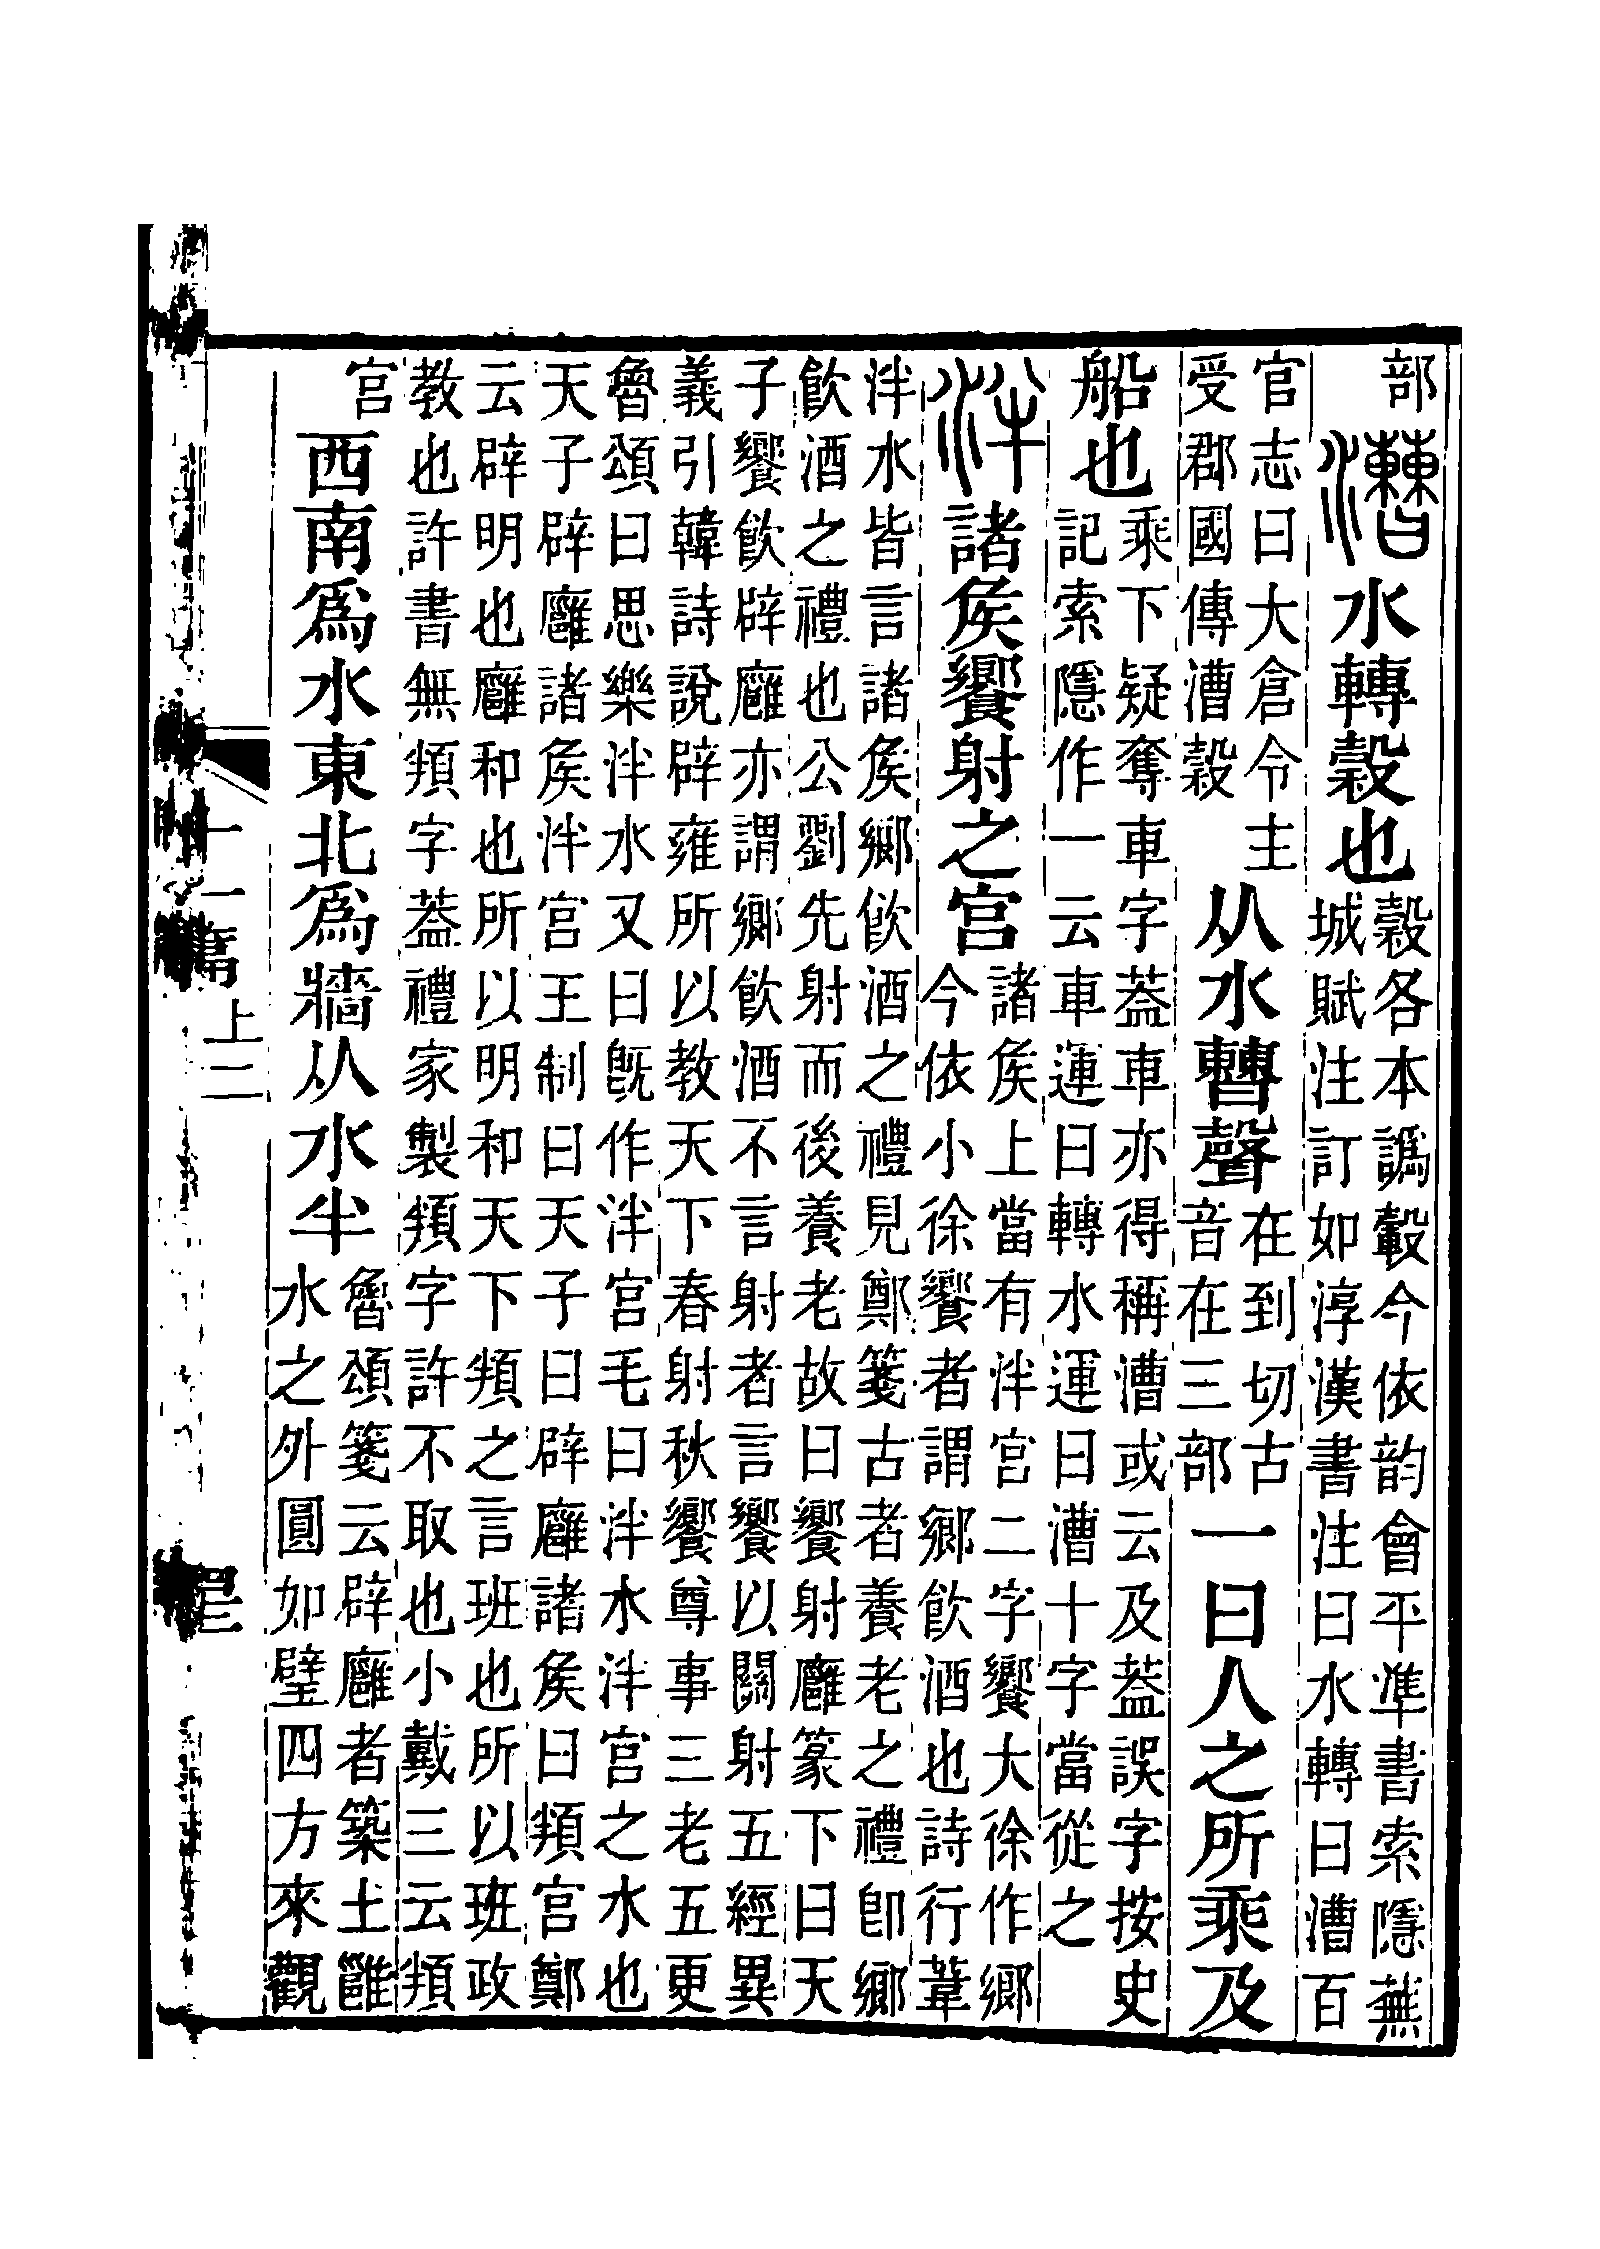 部漕水轉穀也穀各本譌轂今依韵會平準書索隱蕪城賦注訂如淳漢書注曰水轉曰漕百
官志曰大倉令主受郡國傳漕穀从水曹聲在到切古音在三部一曰人之所乘及
船也乘下疑奪車字葢車亦得稱漕或云及葢誤字按史記索隱作一云車運曰轉水運曰漕十字當從之
泮諸矦饗射之宮諸矦上當有泮宮二字饗大徐作鄉今依小徐饗者謂鄉飮酒也詩行葦
泮水皆言諸矦鄉飮酒之禮見鄭箋古者養老之禮卽鄉
飮酒之禮也公劉先射而後養老故曰饗射廱篆下曰天
子饗飮辟廱亦謂鄉飮酒不言射者言饗以關射五經異
義引韓詩說辟雍所以教天下春射秋饗尊事三老五更
魯頌曰思樂泮水又曰旣作泮宮毛曰泮水泮宮之水也
天子辟廱諸矦泮宮王制曰天子曰辟廱諸矦曰頖宮鄭
云辟明也廱和也所以明和天下頖之言班也所以班政
教也許書無頖字葢禮家製頖字許不取也小戴三云頖
宮西南爲水東北爲牆从水半魯頌箋云辟廱者築土雝水之外圓如璧四方來觀
十一篇上二